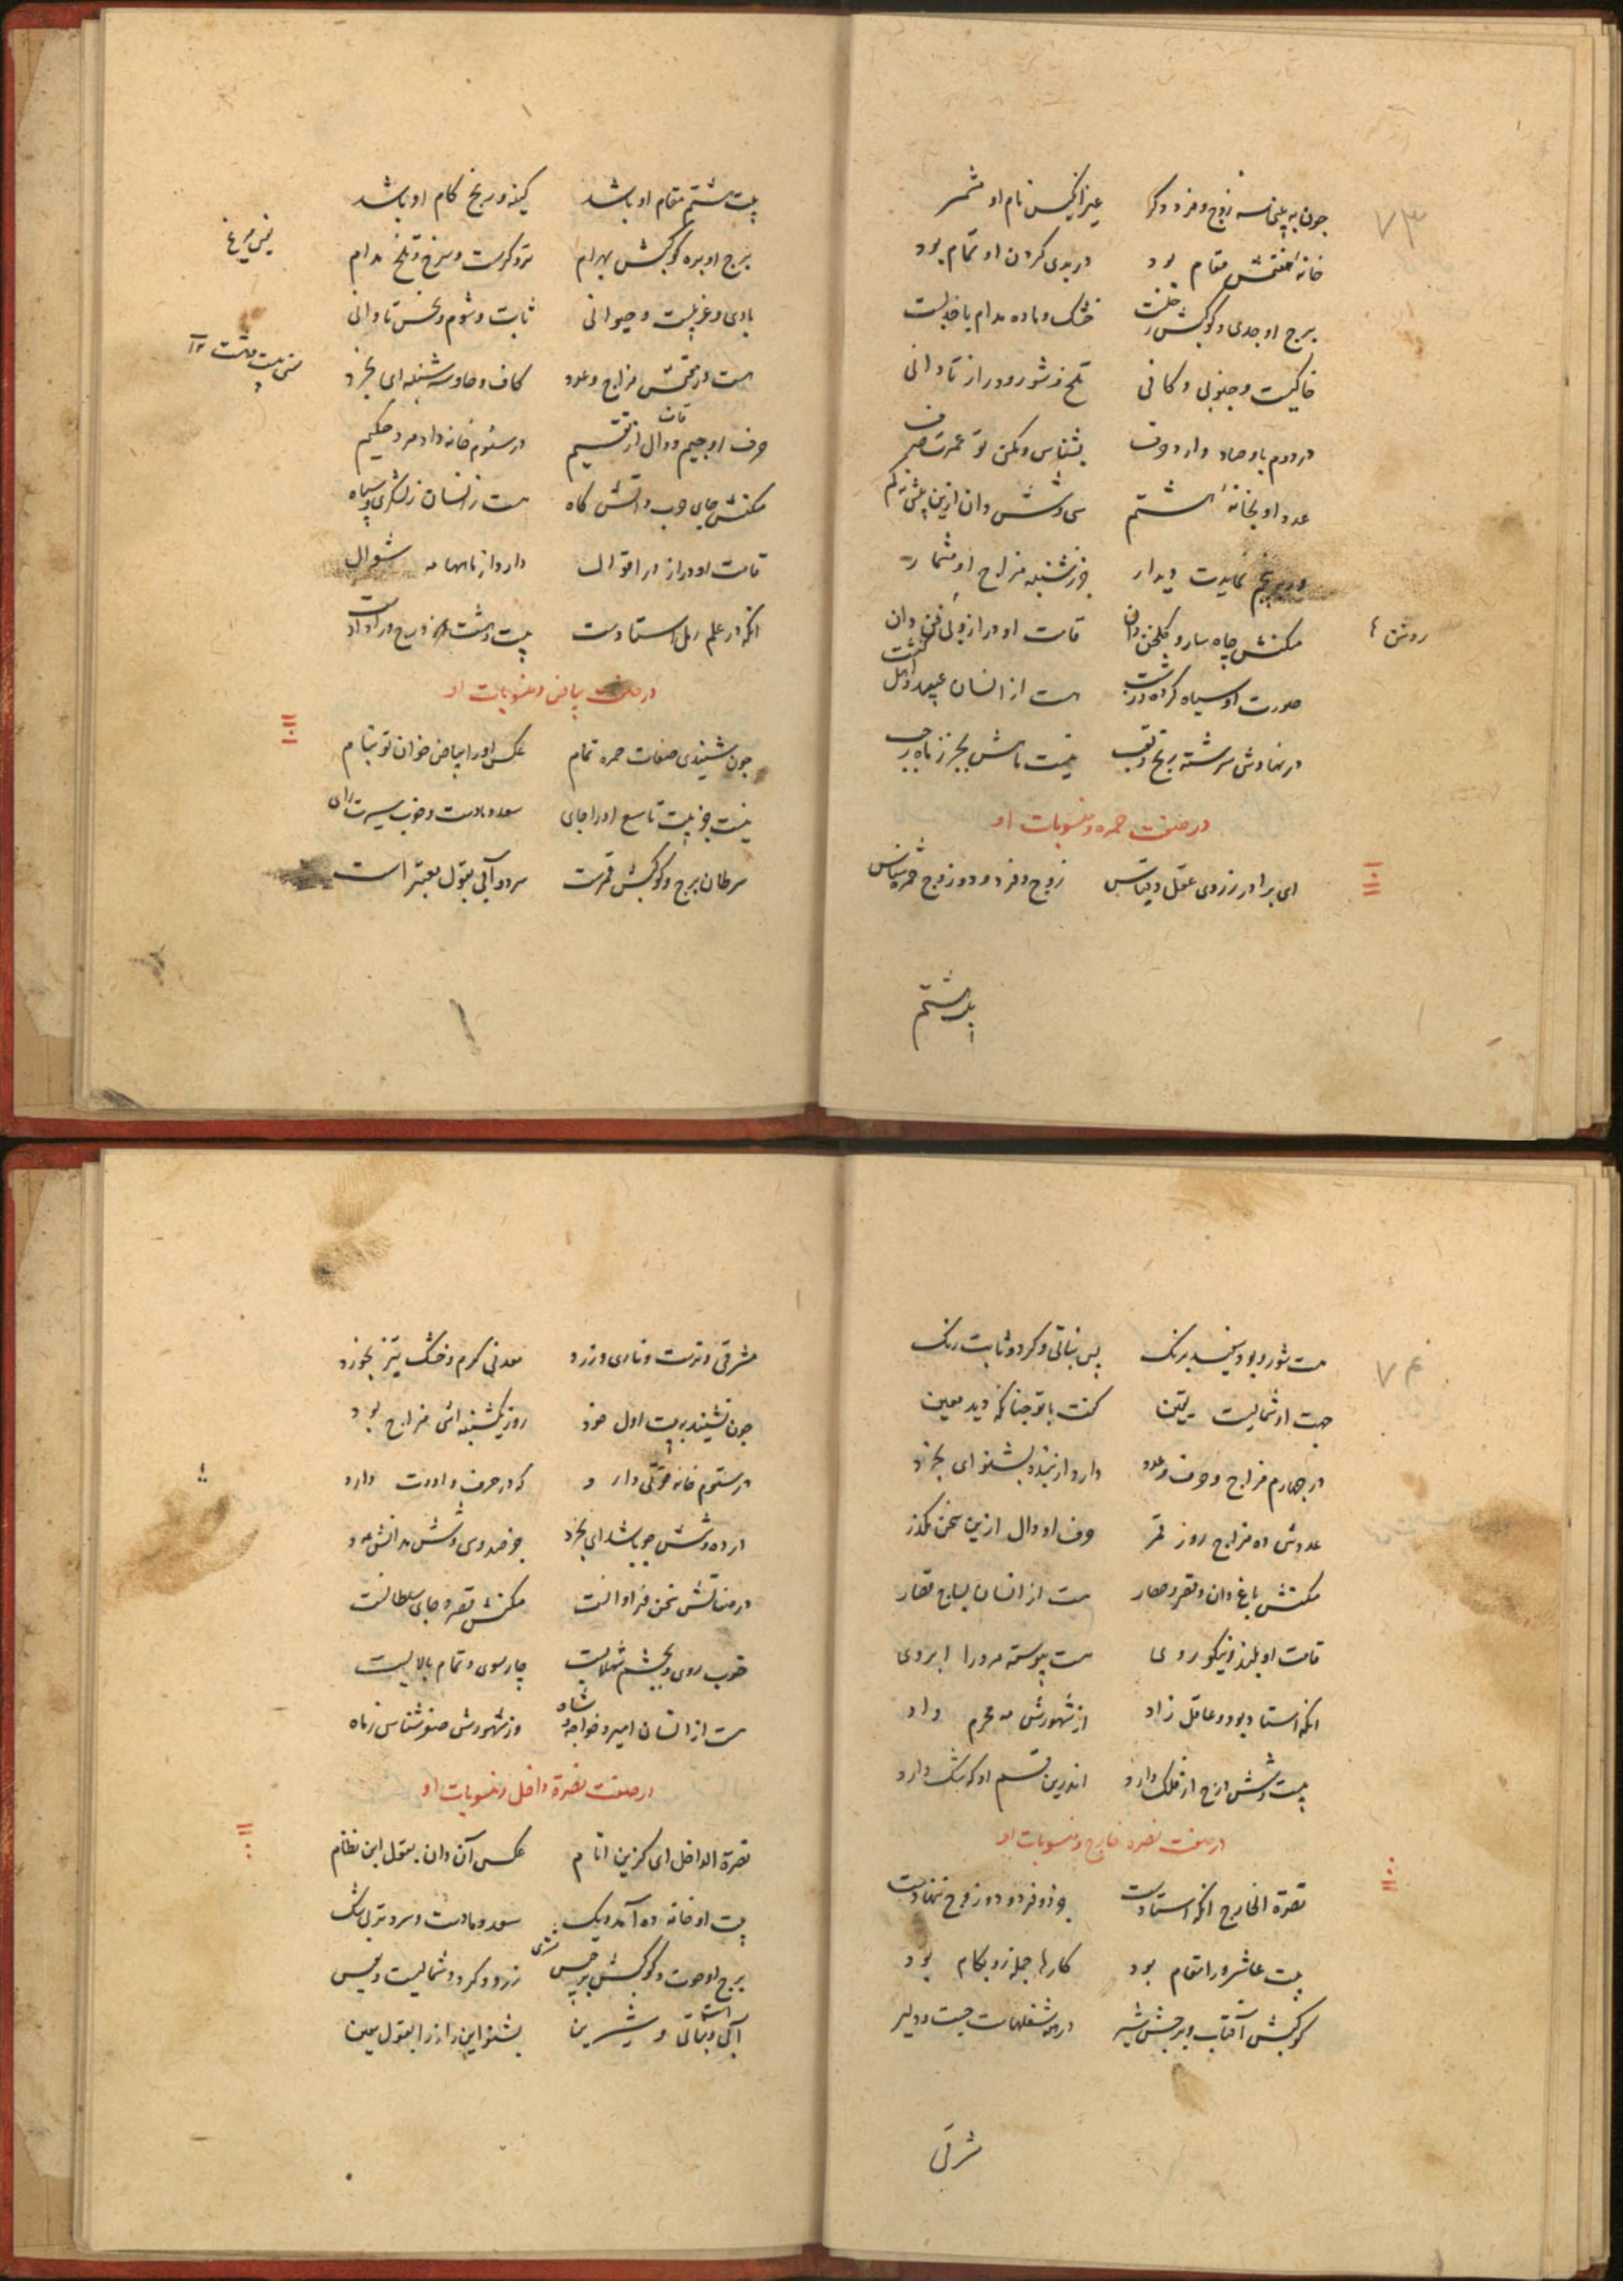 ۷۳
چون به بینی سه زوج و فرد دکر غیر انکیس نام او مشمر
خانه هفتمش مقام بود در بدی کردن او تمام بود
برج او جدی و کوکبش زحلست خشک و ماده مدام با خللست
خاکیست و جنوبی و کانی تلخ و شور و دراز تا دانی
در دوم با و صاد دارد حرف بشناس و مکن تو عمرت صرف
عدد او بخانه هشتم سی و شش دان ازین
نمایدت دیدار جز شنبه مزاج او مشمار
روشن
مکنش چاه سار و کلخن دان قامت او دراز
صورت او سیاه کرده درشت هست از انسان
در نهادش سرشته رنج و تعب نیست ماهش بجز ز ماه رجب
در صفت حمره و منسوبات او
ای برادر ز روی عقل و قیاس زوج و فرد و دو زوج حمره شناس
بیت هشتم
بیت هشتم مقام او باشد کینه و رنج کام او باشد
برج او بره کوکبش بهرام تر و کرمست و سرخ و تلخ مدام
بادی و غربیست و حیوانی ثابت و شوم و نحس تا دانی
هست در پنجمش مزاج و عدد کاف و ها و سه شنبه ای بخرد
حرف او جیم و دال از تقسیم در سئوم خانه داد مرد حکیم
مکنش جای حرب و آتش کاه هست ز انسان ز لشکری و سپاه
قامت او دراز در اقوال دارد از ماهها مه شوال
انکه در علم رمل استادست بیست و هشت
در صفت بیاض و منسوبات او
چون شنیدی صفات حمره تمام عکس او را بیاض خوان تو بنام
نیست جز بیت تاسع او را جای سعد و مادست و خوب سیرت رای
سرطان برج و کوکبش قمرست سرد و آبی بقول معتبر است
۷۴
هست شور و بود سفید برنک پس نباتی و کرد و ثابت رنک
جهت او شمالیست یقین کفت با تو چنانکه دید معین
در چهارم مزاج و حرف و عدد دارد از بنده بشنو ای بخرد
عددش ده مزاج روز قمر حرف او دال ازین سخن مکذر
مکنش باغ دان و قصر و حصار هست از انسان
قامت او بلند و نیکو روی هست پیوسته مر ورا ابروی
انکه استاد بود و عاقل زاد از شهورش مه محرم داد
بیست و شش درج از فلک دارد اندرین قسم او که شک دارد
در صفت نصره خارج و منسوبات او
نصرة الخارج انکه استادست دو فرد و دو زوج بنهادست
بیت عاشر ورا مقام بود کارها جمله زو بکام بود
کوکبش آفتاب و برجش شیر در همه شغلهاست چست و دلیر
شرقی
مشرقی و ترست و ناری و زرد معدنی کرم و خشک نیز بخورد
چون نشیند به بیت اول خود روز یکشنبه اش مزاج بود
در سئوم خانه دارد که در حرف دارد
در ده و شش چو باشد ای بخرد جز صد و سی و شش مدانش عدد
در صفاتش سخن فراوانست مکنش قصر و جای سلطانست
خوب روی و بچشم شهلاییست چارسوی و تمام بالاییست
هست از انسان امیر و خواجه و شاه وز شهورش صفر شناس ز ماه
در صفت نصرة داخل و منسوبات او
نصرة الداخل ای کزین انام عکس آن دان بقول این نظام
بیت او خانه ده آمد و یک سعد و مادست و سرد و تر بی شک
برج او حوت و کوکبش برجیس مشتری زرد و کرد و شمالیست
آبی و نباتی است و شیرین بشنو این راز را بقول